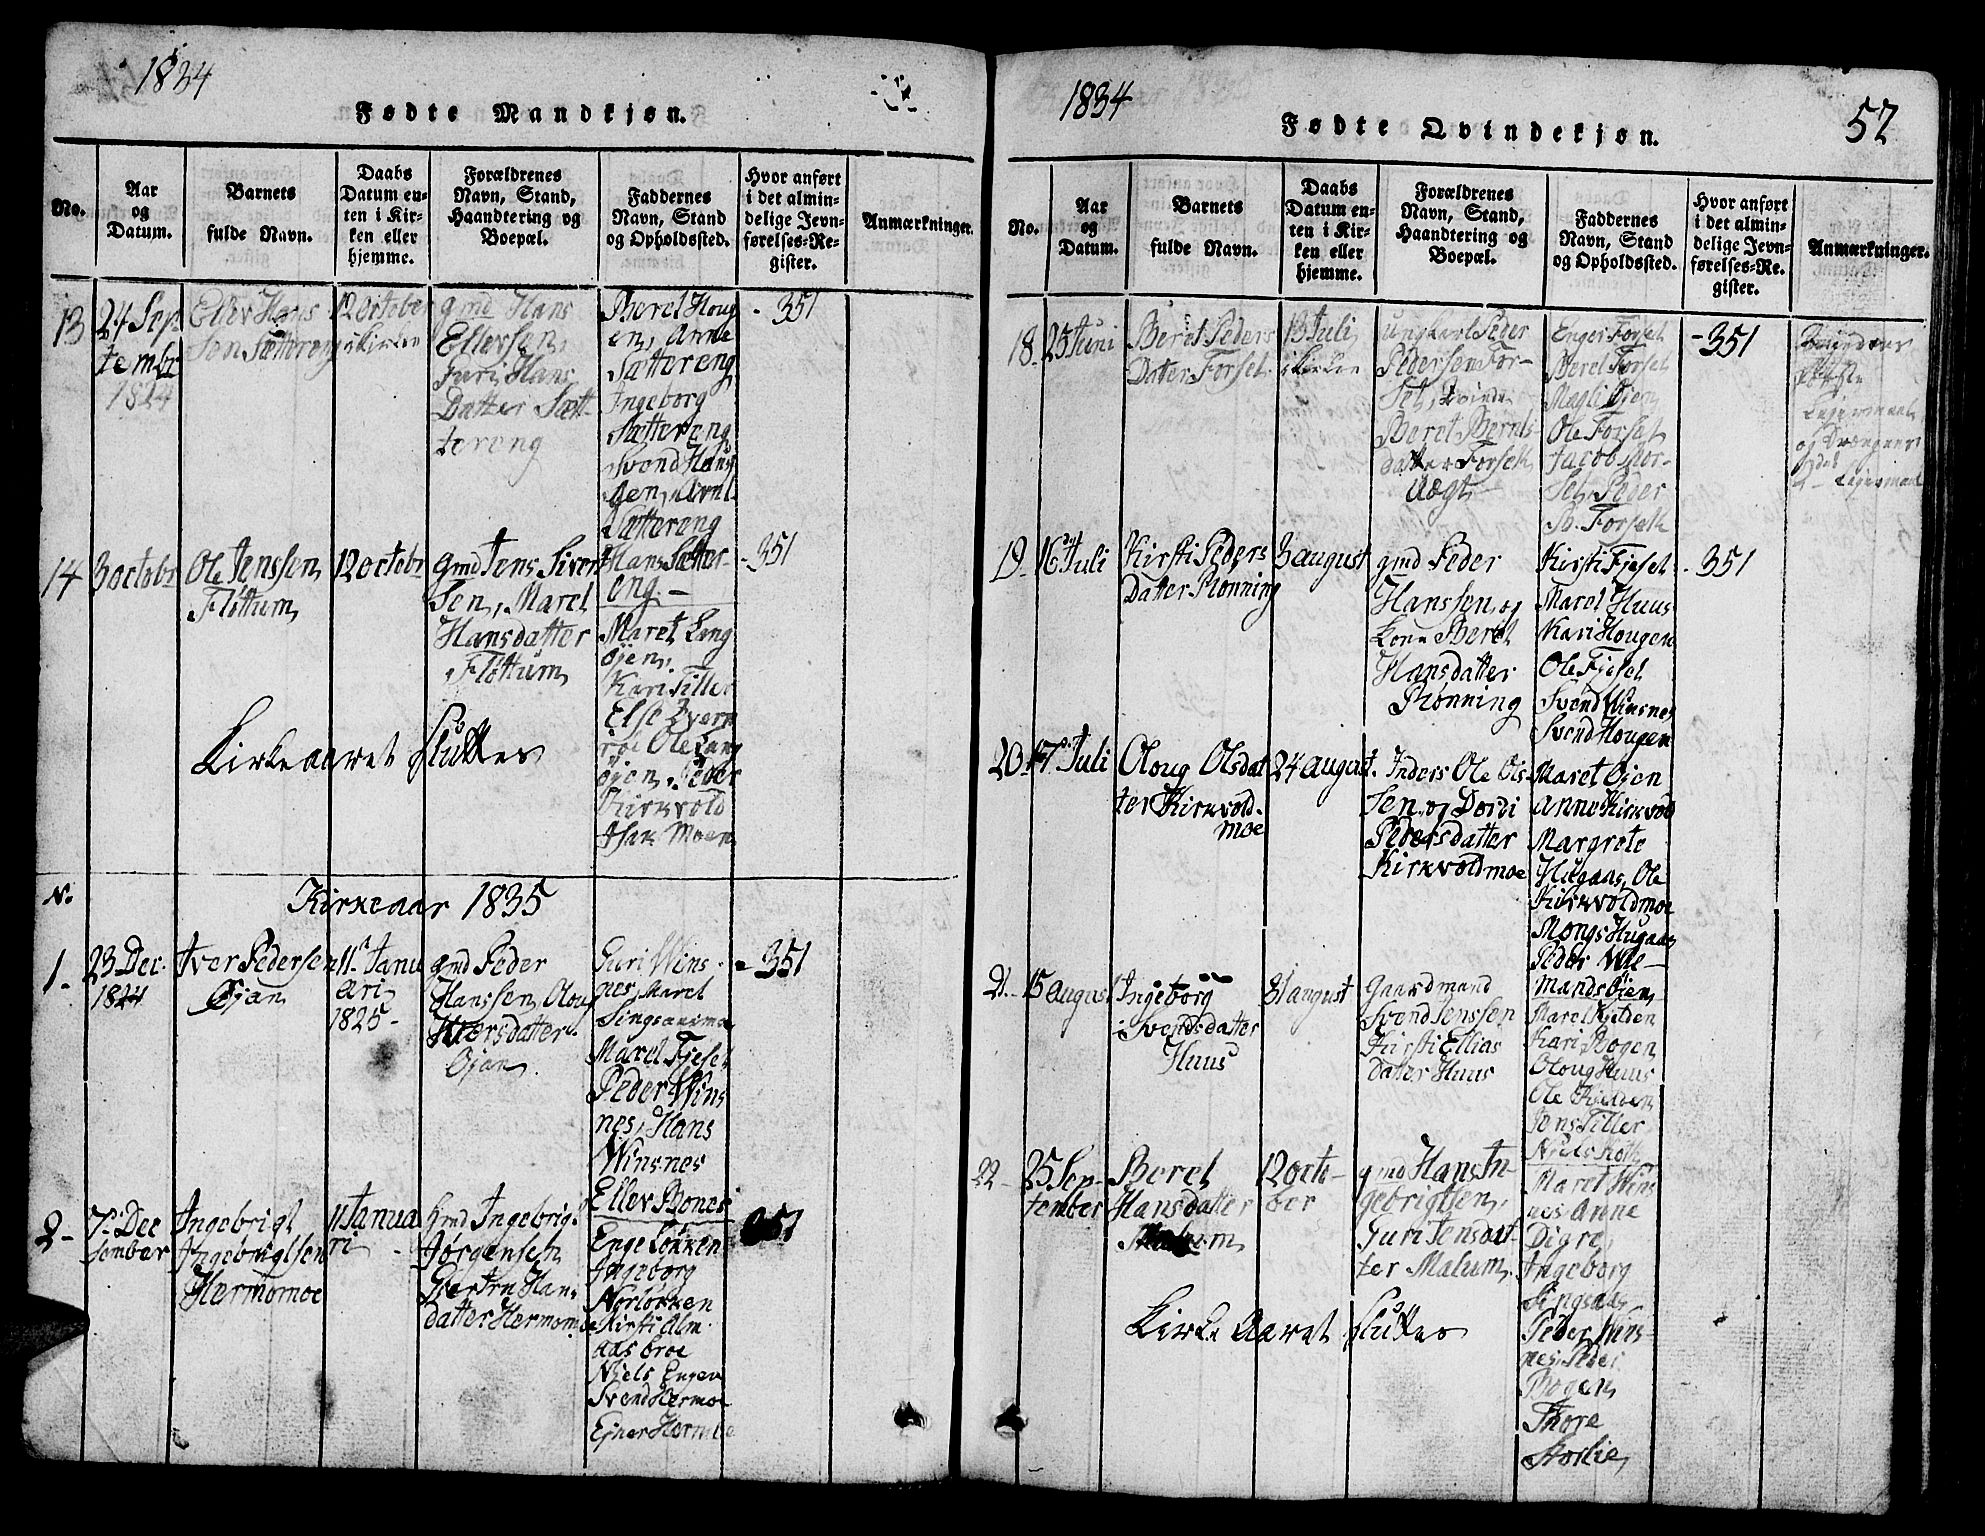 1834
Fødte Mandkjøn.
No.
Aar
og
Datum.
Barnets
fulde Navn.
Daabs
Datum en-
ten i Kir-
ken eller
hjemme.
Forældrenes
Navn, Stand,
Haandtering og
Boepæl.
Faddernes
Navn, Stand
og Opholdssted.
Hvor anført
i det almin-
delige Jevn-
førelses-Re-
gister.
Anmærkninger.
13
24 Sep
tembr
1824
Ellev Hans
Sen Sættereng
12 October
i Kirken
gmd Hans
Ellevsen,
Guri Hans
Datter Sæt-
tereng
Beret Houg
en, Anne
Sættereng
Ingeborg
Sættereng
Svend Houg
en, Arnt
Sættereng
Hans Sætter-
eng. -
- 351
14
3 octobr
Ole Jenssen
Flöttum
12 octobr
gmd Jens Siver
Sen, Maret
Hansdatter
Flöttum
Maret Lang
öjen,
Kari Tiller
Else Qvern
röe Ole Lang
öjen, Peder
Kirkvold
Isak Moen
- 351
Kirkeaaret Sluttes
N.
Kirkeaar 1835
1.
23 Dec.
1824
Iver Pedersen
Øjan
11 Janu
ari
1825 -
gmd Peder
Hanssen, Oloug
Iversdatter
Øjan
Guri Wins-
nes, Maret
Singsaasmoe
Maret Fjeset
Peder Wins
nes, Hans
Winsnes
Ellev Bones
- 351
2 -
7 Dec
sember
Ingebrigt
Ingebrigtsen
Hermomoe
11 Janua
ri
hmd Ingebrigt
Jørgensen
Giertru Hans
datter Hermomoe
Enge Løkken
Ingeborg
Norløkken
Kirsti Alm-
aas broe
Niels Enge
Svend Hermoe
Ejner Hermoe
351
1834
Fødte Qvindekjøn.
52
No.
Aar
og
Datum.
Barnets
fulde Navn.
Daabs
Datum en-
ten i Kir-
ken eller
hjemme.
Forældrenes
Navn, Stand,
Haandtering og
Boepæl.
Faddernes
Navn, Stand
og Opholdssted.
Hvor anført
i det almin-
delige Jevn-
førelses-Re-
gister.
Anmærkninger.
18.
25 Juni
Beret Peders
Dater Forset
13 Juli
i Kirken
ungkarl Peder
Pedersen For-
Set, Qvinde
Beret Bernts
datter Forseth
Uægt
Enger Forset
Beret Forset
Magli Øien
Ole Forset
Jacob For-
Set, Peder
B. Forseth
- 351
Qvindens
første
Lejermaal
og Drængens
Lejermaal
19 -
16 Juli
Kirsti Peders
Datter Rönning
3 august
gmd Peder
Hanssen og
kone Beret
Hansdatter
Rönning
Kirsti Fjeset
Maret Huus
Kari Hougen
Ole Fjeset
Svend Winsnes
Svend Hougen
- 351
20
17 Juli
Oloug Olsdat
ter Kirkvold-
moe
24 august
Inders Ole Ols-
Sen og Dordi
Pedersdatter
Kirkvoldmoe
Maret Øjen
Anne Kirkvold
Margrete
Hugaas, Ole
Kirkvoldmoe
Mongs Hugaas
Peder Wil-
mandsöjen
21.
15 august
Ingeborg
Svendsdatter
Huus
31 august
Gaardmand
Svend Jenssen
Kirsti Ellias
dater Huus
Maret Kjelden
Kari Bogen
Oloug Huus
Ole Kjelden
Jens Tiller
Niels Koth
22 -
25 Sep-
tember
Beret
Hansdatter
Malum
12 octo-
ber
gmd Hans In-
gebrigtsen,
Guri Jensdat-
ter Malum
Maret Wins
nes Anne
Digre,
Ingeborg
Singsaas
Peder Wins-
nes, Peder
Bogen,
Thore
Storlie
Kirke Aaret Sluttes